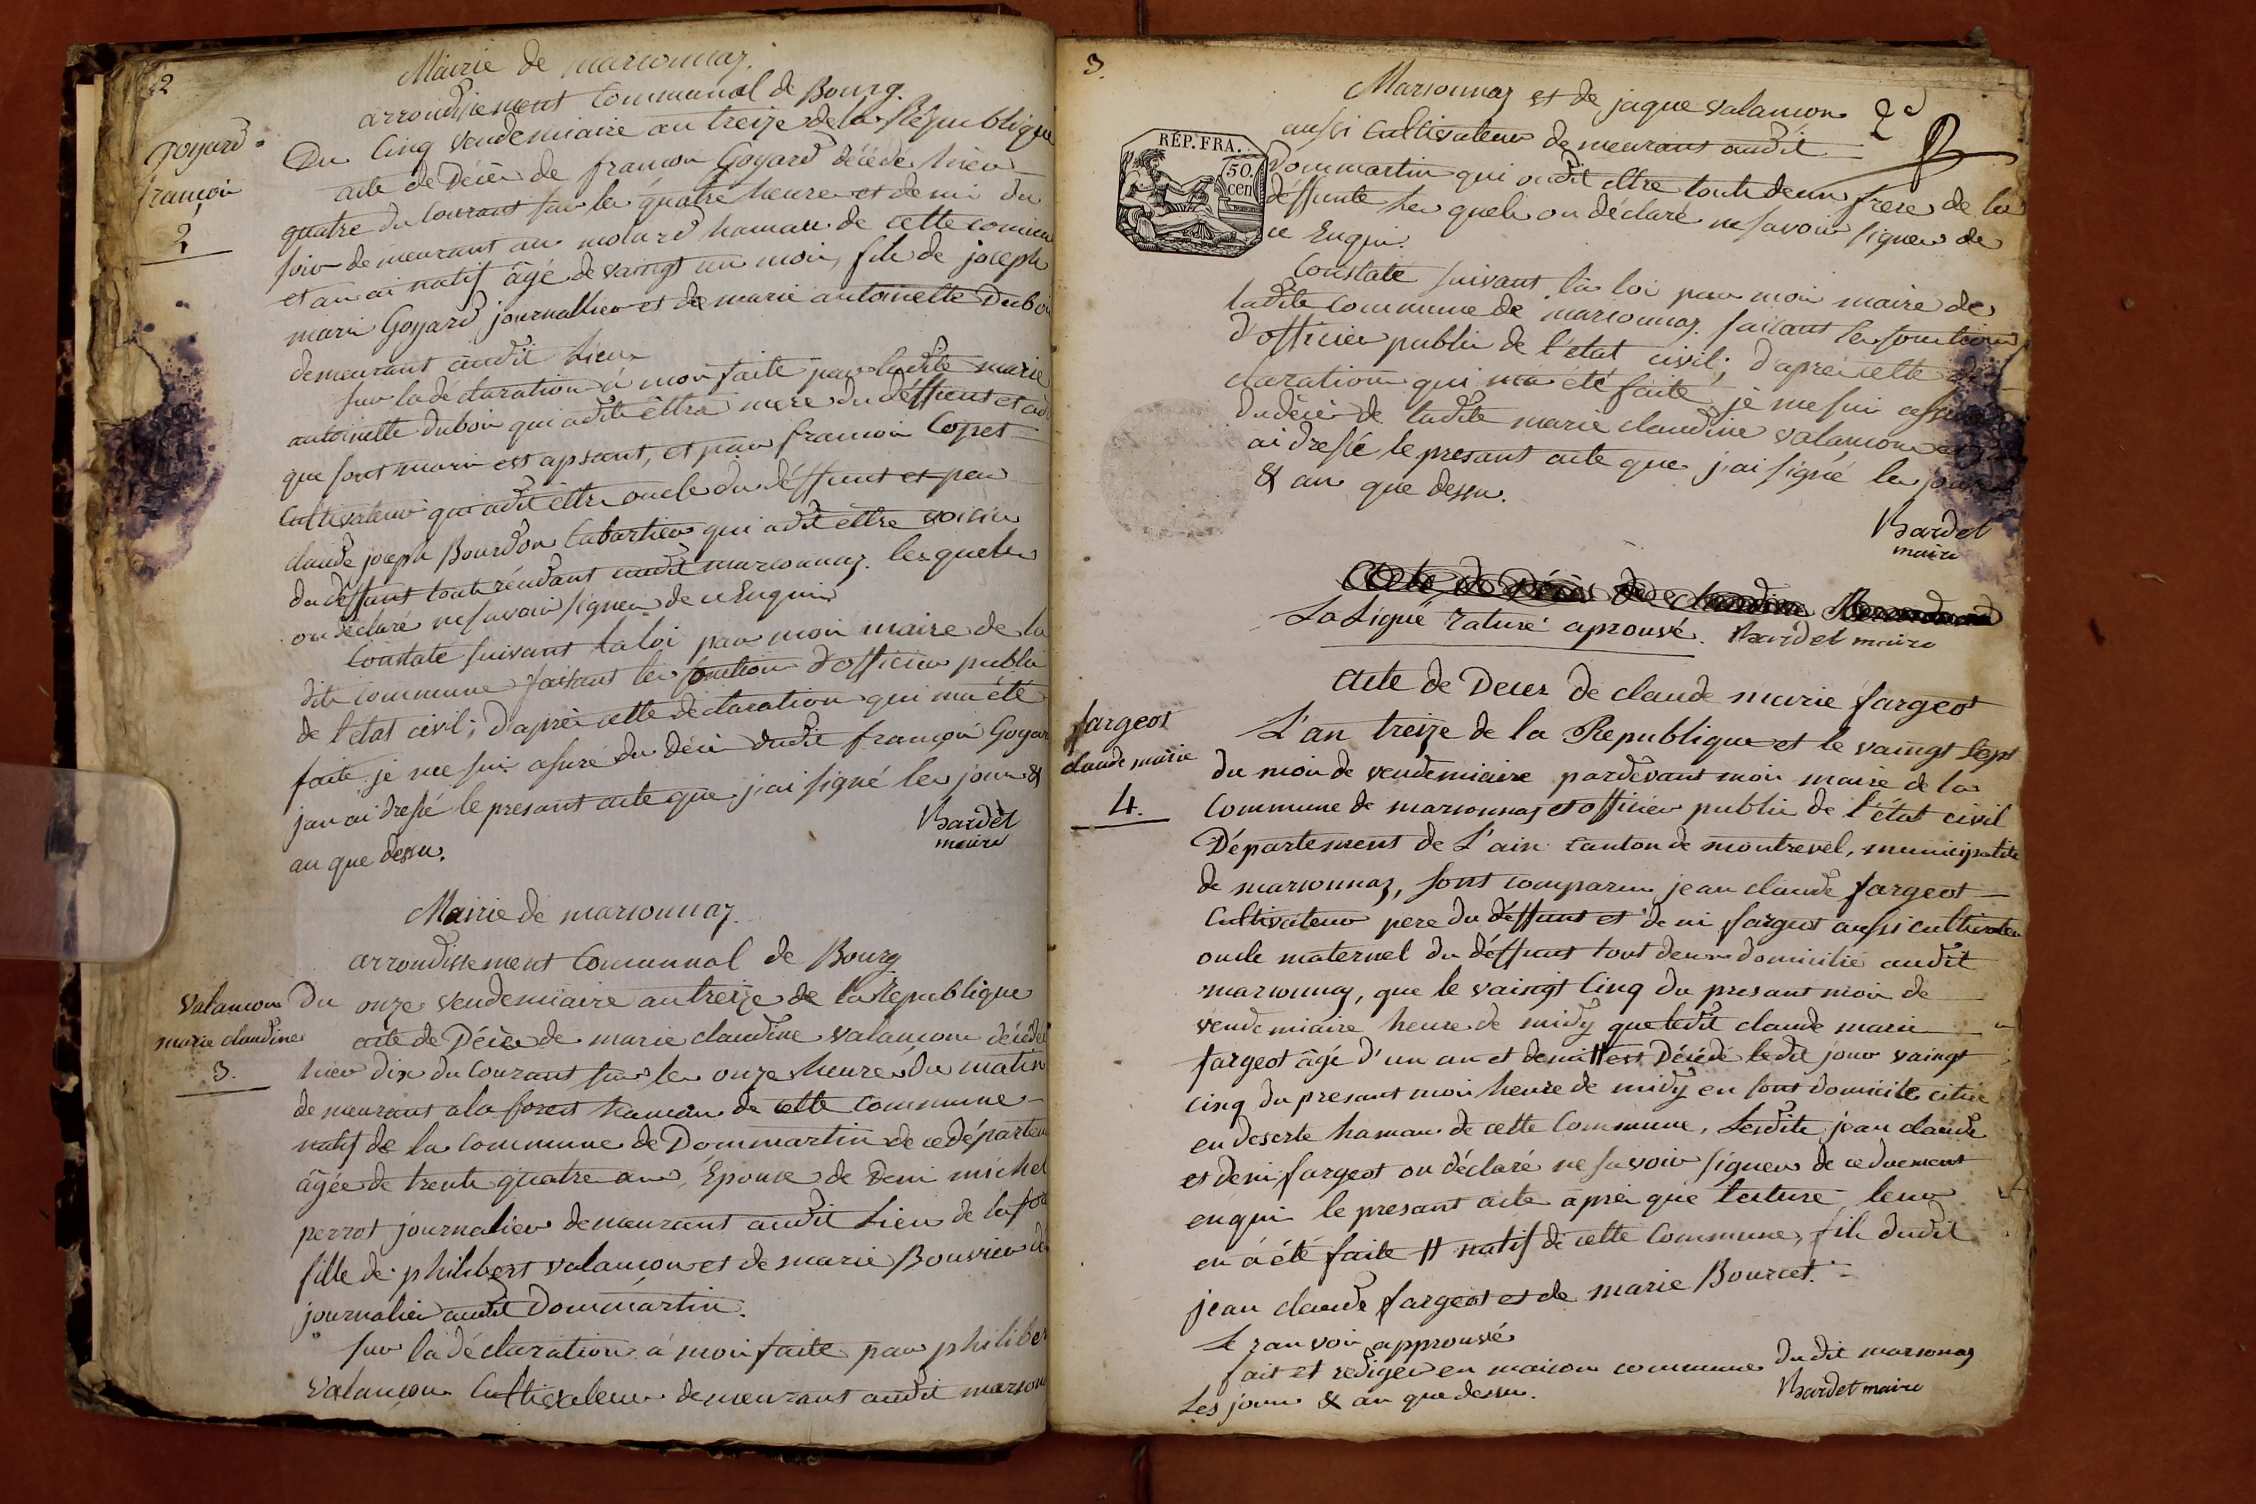 2
Mairie de marsonnaz.
arrondissement Communal de Bourg.
Goyard
françoi
2
Du Cinq vendemiaire an treize de la Republique
acte de Décès de françoi Goyard décédé hier
quatre du Courant sur les quatre heure et demi du
soir demeurant au molard hamau de cette comune
et an ai natif âgé de vaingt un moi, fils de joseph
mari Goyard journallier et de marie antoinette Duboi
demeurant audit Lieu
sur la déclaration à moi faite par ladite marie
antoinette duboi qui a dit êttre mere du déffunt et
que sont mari est apsent, et par françoi Copet
Cultivateur qui a dit êttre oncle du déffunt et par
claude joseph Bourdon Cabartier qui a dit êttre voisin
du déffunt tout résidant audit marsonnaz. lesquels
on déclaré ne savoir signer de ce Enquis
Constaté suivant la loi par moi maire de la
dite commune faisant les fonction d'officier public
de l'état civil; d'aprèi cette déclaration qui ma été
faite je me sui assuré du décè dudit françoi Goyar
jan ai dressé le presant acte que j'ai signé les jour &
an que dessu.
Bardet
maire
Mairie de marsonnaz.
arrondissement Communal de Bourg
Valançon
marie claudine
3.
Du onze vendemiaire an treize de la Republique
acte de Décès de marie claudine valançon décédée
hier dix du Courant sur les onze heure du matin
demeurant a la forest hamau de cette Commune
natif de la commune de Dommartin de ce départem
âgée de trente quatre an, Epouse de Deni michel
perrot journalier demeurant audit Lieu de la fore
fille de philibert valançon et de marie Bouvier
journalier audit Dommartin.
sur la déclaration à moi faite par philiber
valançon Cultivateur demeurant audit marsonn
3.
2d
Marsonnaz et de jaque valançon
aussi Cultivateur demeurant audit
RÉP. FRA.
50.
cen
Dommartin qui on dit êttre touts deux frere de la
déffunte les quels on déclaré ne savoir signer de
ce Enquis.
Constaté suivant la loi par moi maire de
ladite commune de marsonnaz faisant les fonction
d'officier public de l'état civil; d'aprèi cette dé
claration qui ma été faite, je me sui assuré
du décè de ladite marie claudine valançon
ai dressé le presant acte que j'ai signé les jour
& an que dessu.
Bardet
maire
acte de Décès de claudine
La Ligne raturé aprouvé. Bardet maire
acte de Deces de claude marie fargeot
fargeot
claude marie
4.
L'an treize de la Republique et le vaingt Sept
du moi de vendemiaire pardevant moi maire de la
Commune de marsonnaz et officier public de l'état civil
Département de L'ain canton de montrevel, municipalité
de marsonnaz, sont comparu jean claude fargeot
Cultivateur pere du déffunt et deni fargeot aussi cultivateur
oncle maternel du déffunt tout deux domicilié audit
marsonnaz, que le vaingt Cinq du presant moi de
vendemiaire heure de midy que ledit claude marie
fargeot âgé d'un an et demi # est Décédé ledit jour vaingt
cinq du presant moi heure de midy en sont domicile citué
en deserte hamau de cette Commune, Lesdits jean claude
et deni fargeot on déclaré ne savoir signer de ce duement
enqui le presant acte aprèi que lecture leur
en à été faite # natif de cette Commune, fils dudit
jean claude fargeot et de marie Bourcet.
Le ranvoi approuvé
fait et rediger en maison commune dudit marsonnaz
Les jour & an que dessu.
Bardet maire